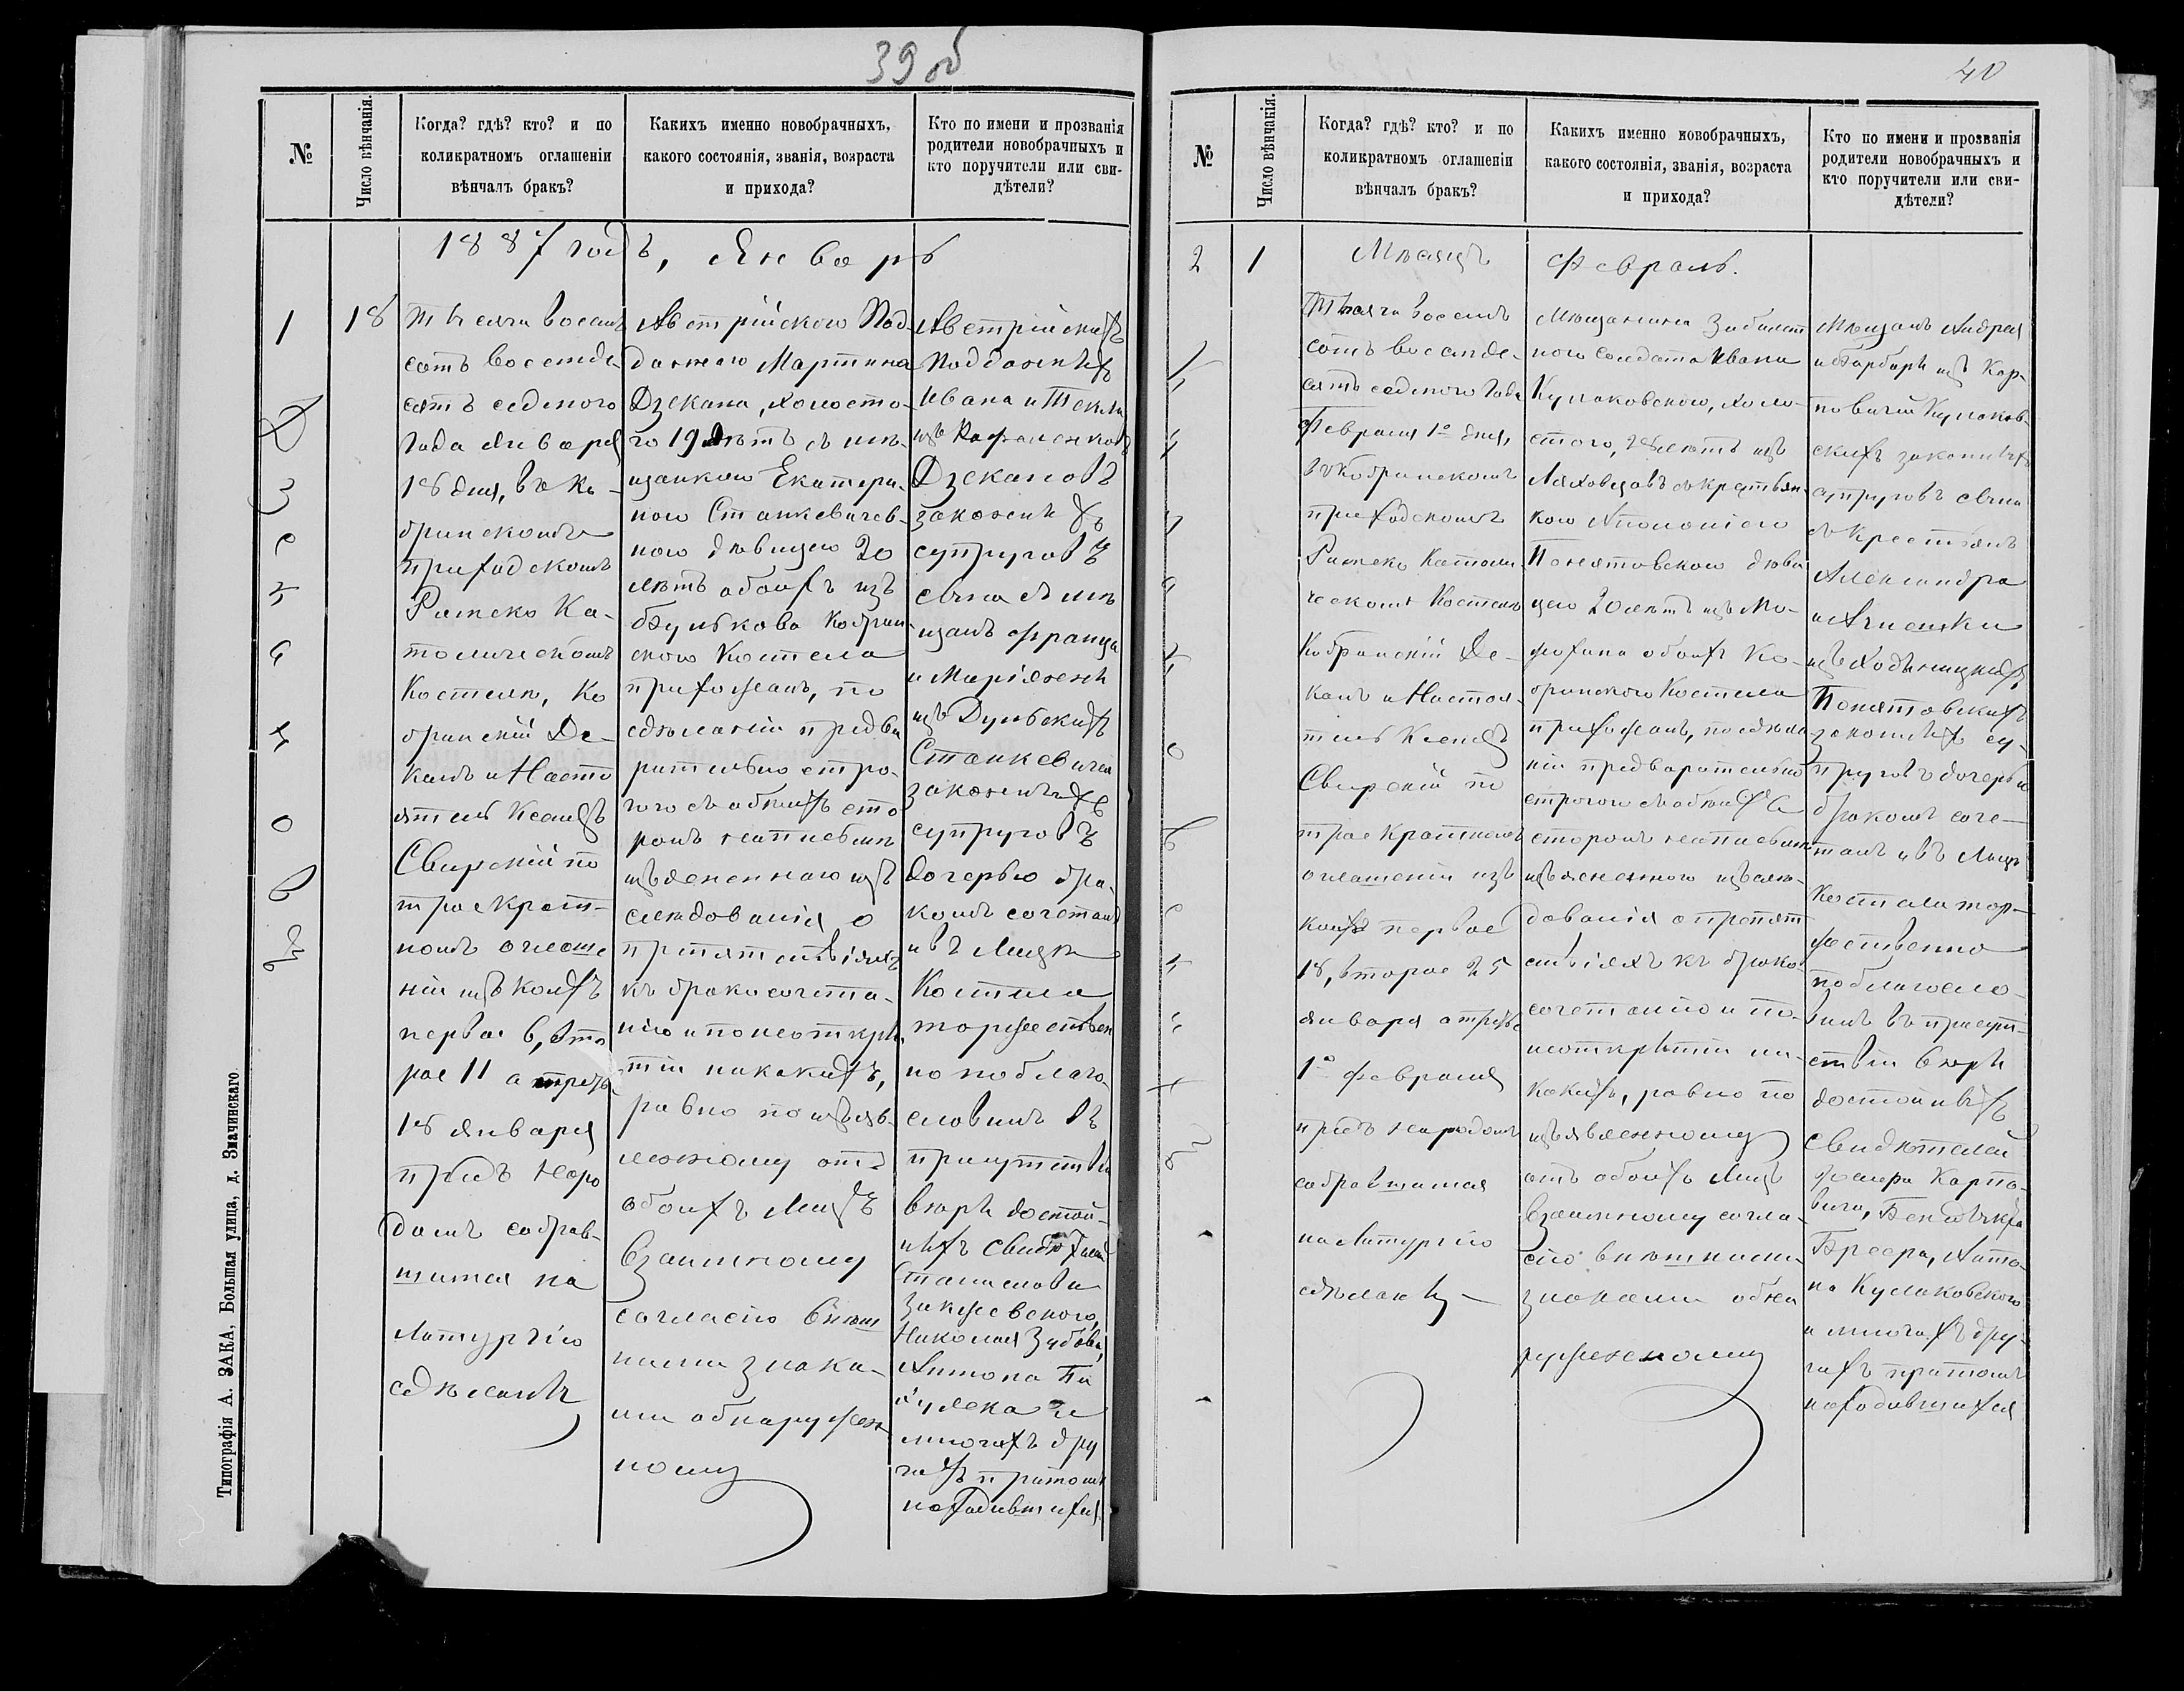 39 об
№
Число вѣнчанія.
Когда? гдѣ? кто? и по
коликратномъ оглашеніи
вѣнчалъ бракъ?
Какихъ именно новобрачныхъ,
какого состоянія, званія, возраста
и прихода?
Кто по имени и прозванія
родители новобрачныхъ и
кто поручители или сви-
дѣтели?
1887 годъ, Январь
1
18
Дзекановъ
Тысяча восемь
сотъ восемьде-
сятъ седмого
года января
18 дня, въ Ко-
бринскомъ
приходскомъ
Римско Ка-
толическомъ
Костелѣ, Ко
бринскій Де-
канъ и Насто
ятель Ксендзъ
Свирскій по
троекрат-
номъ оглаше
ніи изъ коихъ
первое 6, вто
рое 11 а третье
18 января
предъ наро
домъ собрав-
шимся на
Литургію
сдѣланы
Австрійского Под-
данного Мартина
Дзекана, холосто-
го 19 лѣтъ съ мѣ-
щанкою Екатери-
ною Станкевичев-
ною дѣвицею 20
лѣтъ обоихъ изъ
Кобрин-
ского Костела
прихожанъ, по
сдѣланіи предва
рительно стро-
гого съ обѣихъ сто
ронъ написьмѣ
изъясненного изъ
слѣдованія о
препятствіяхъ
къ бракосочета-
нію и по неоткры
тіи никакихъ,
равно по изъяв-
ленному отъ
обоихъ лицъ
взаимному
согласію внѣш
ними знака-
ми обнаружен
ному
Австрійскихъ
Подданныхъ
Ивана и Теклы
изъ
Дзекановъ
законныхъ
супруговъ
сына съ мѣ
щанъ Франца
и Маріянны
изъ Дульскихъ
Станкевичей
законныхъ
супруговъ
дочерью бра-
комъ сочеталъ
и въ лицѣ
Костела
торжествен
но поблаго-
словилъ въ
присутствіи
вѣры достой-
ныхъ свидѣтелей
Станислава
Закжевского,
Николая Зубова,
Антона
и
многихъ дру
гихъ притомъ
находившихся.
Типографія А. ЗАКА, Большая улица, д. Значинскаго.
40
№
Число вѣнчанія.
Когда? гдѣ? кто? и по
коликратномъ оглашеніи
вѣнчалъ бракъ?
Какихъ именно новобрачныхъ,
какого состоянія, званія, возраста
и прихода?
Кто по имени и прозванія
родители новобрачныхъ и
кто поручители или сви-
дѣтели?
2
1
Мѣсяцъ Февраль.
Кулаковскихъ
Тысяча восемь
сотъ восемьде-
сятъ седмого года
Февраля 1º дня,
въ Кобринскомъ
приходскомъ
Римско Католи-
ческомъ Костелѣ
Кобринскій Де-
канъ и Настоя-
тель Ксендзъ
Свирскій по
троекратномъ
оглашеніи изъ
коихъ первое
18, второе 25
января а третье
1º февраля
предъ народомъ
собравшимся
на Литургію
сдѣланы
Мѣщанина Забилет
ного Солдата Ивана
Кулаковского, холо-
стого, 28 лѣтъ изъ
Ляховцовъ съ крестьян-
кою Аполоніею
Понятовскою дѣви
цею 20 лѣтъ изъ
обоихъ Ко-
бринского Костела
прихожанъ, по сдѣла
ніи предварительно
строгого съ обѣихъ
сторонъ написьмѣ
изъясненного изслѣ-
дованія о препят
ствіяхъ къ брако-
сочетанію и по
неоткрытіи ни-
какихъ, равно по
изъявленному
отъ обоихъ лицъ
взаимному согла-
сію внѣшними
знаками обна
руженному
Мѣщанъ Андрея
и Варвары изъ Кар-
повичей Кулаков-
скихъ законныхъ
супруговъ сына
съ Крестьянъ
Александра
и Агнешки
изъ Ходыницкихъ
Понятовскихъ
законныхъ су-
пруговъ дочерью
бракомъ соче-
талъ и въ лицѣ
Костела тор-
жественно
поблагосло-
вилъ въ присут-
ствіи вѣры
достойныхъ
свидѣтелей
Карпо-
вича,
Антона
Кулаковского
и многихъ дру-
гихъ притомъ
находившихся